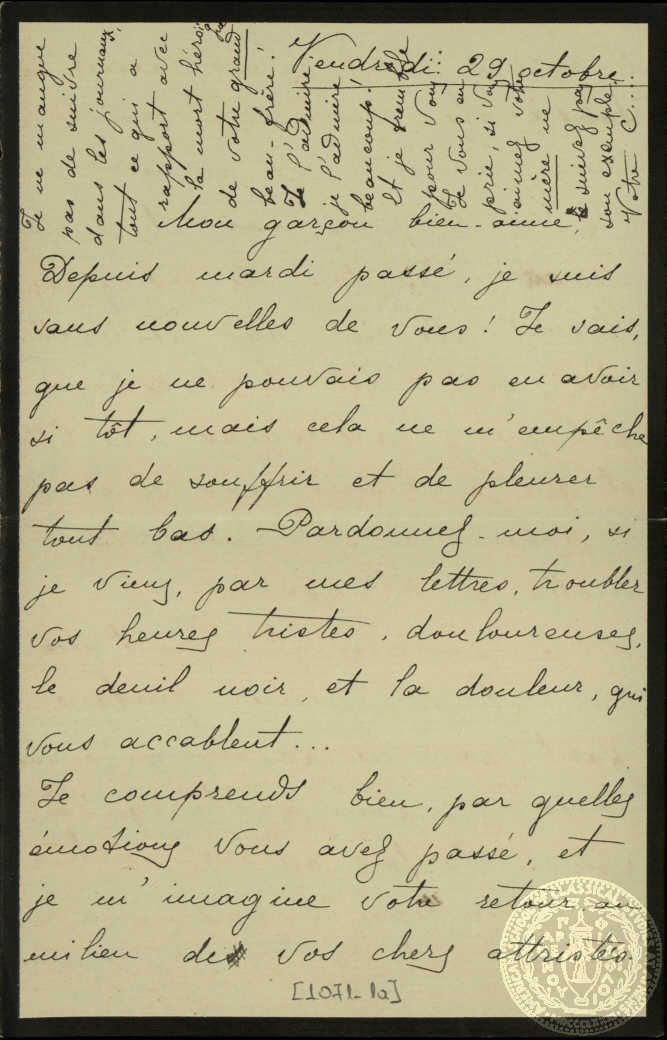 Vendredi 29 octobre
Mon garçon bien-aimé,
Depuis mardi passé, je suis
sans nouvelles de vous! Je sais,
que je ne pouvais pas en avoir
si tôt, mais cela ne m'empêche
pas de souffrir et de pleurer
tout bas. — Pardonnez-moi, si
je viens, par mes lettres, troubler
vos heures tristes, douloureuses,
le deuil noir, et la douleur, qui
vous accablent...
Je comprends bien, par quelles
émotions vous avez passé, et
je m'imagine votre retour au
milieu de vos chers attristés.
[1071-1a]
Je ne manque
pas de suivre
dans les journaux,
tout ce qui a
rapport avec
la mort héroï
de votre grand
beau-frère!
Je l'admire
je l'admire
beaucoup!
Et je tremble
pour vous
Je vous en
prie, si vous
aimez votre
mère ne
suivez pas
son exemple
Votre C....